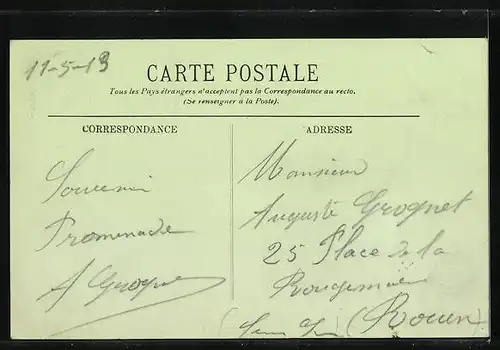 11-5-13
CARTE POSTALE
Tous les Pays étrangers n'acceptent pas la Correspondance au recto.
(Se renseigner à la Poste).
CORRESPONDANCE
Souvenir
Promenade
A Grognet
ADRESSE
Monsieur
Auguste Grognet
25 Place de la
Rougemare
(Rouen)